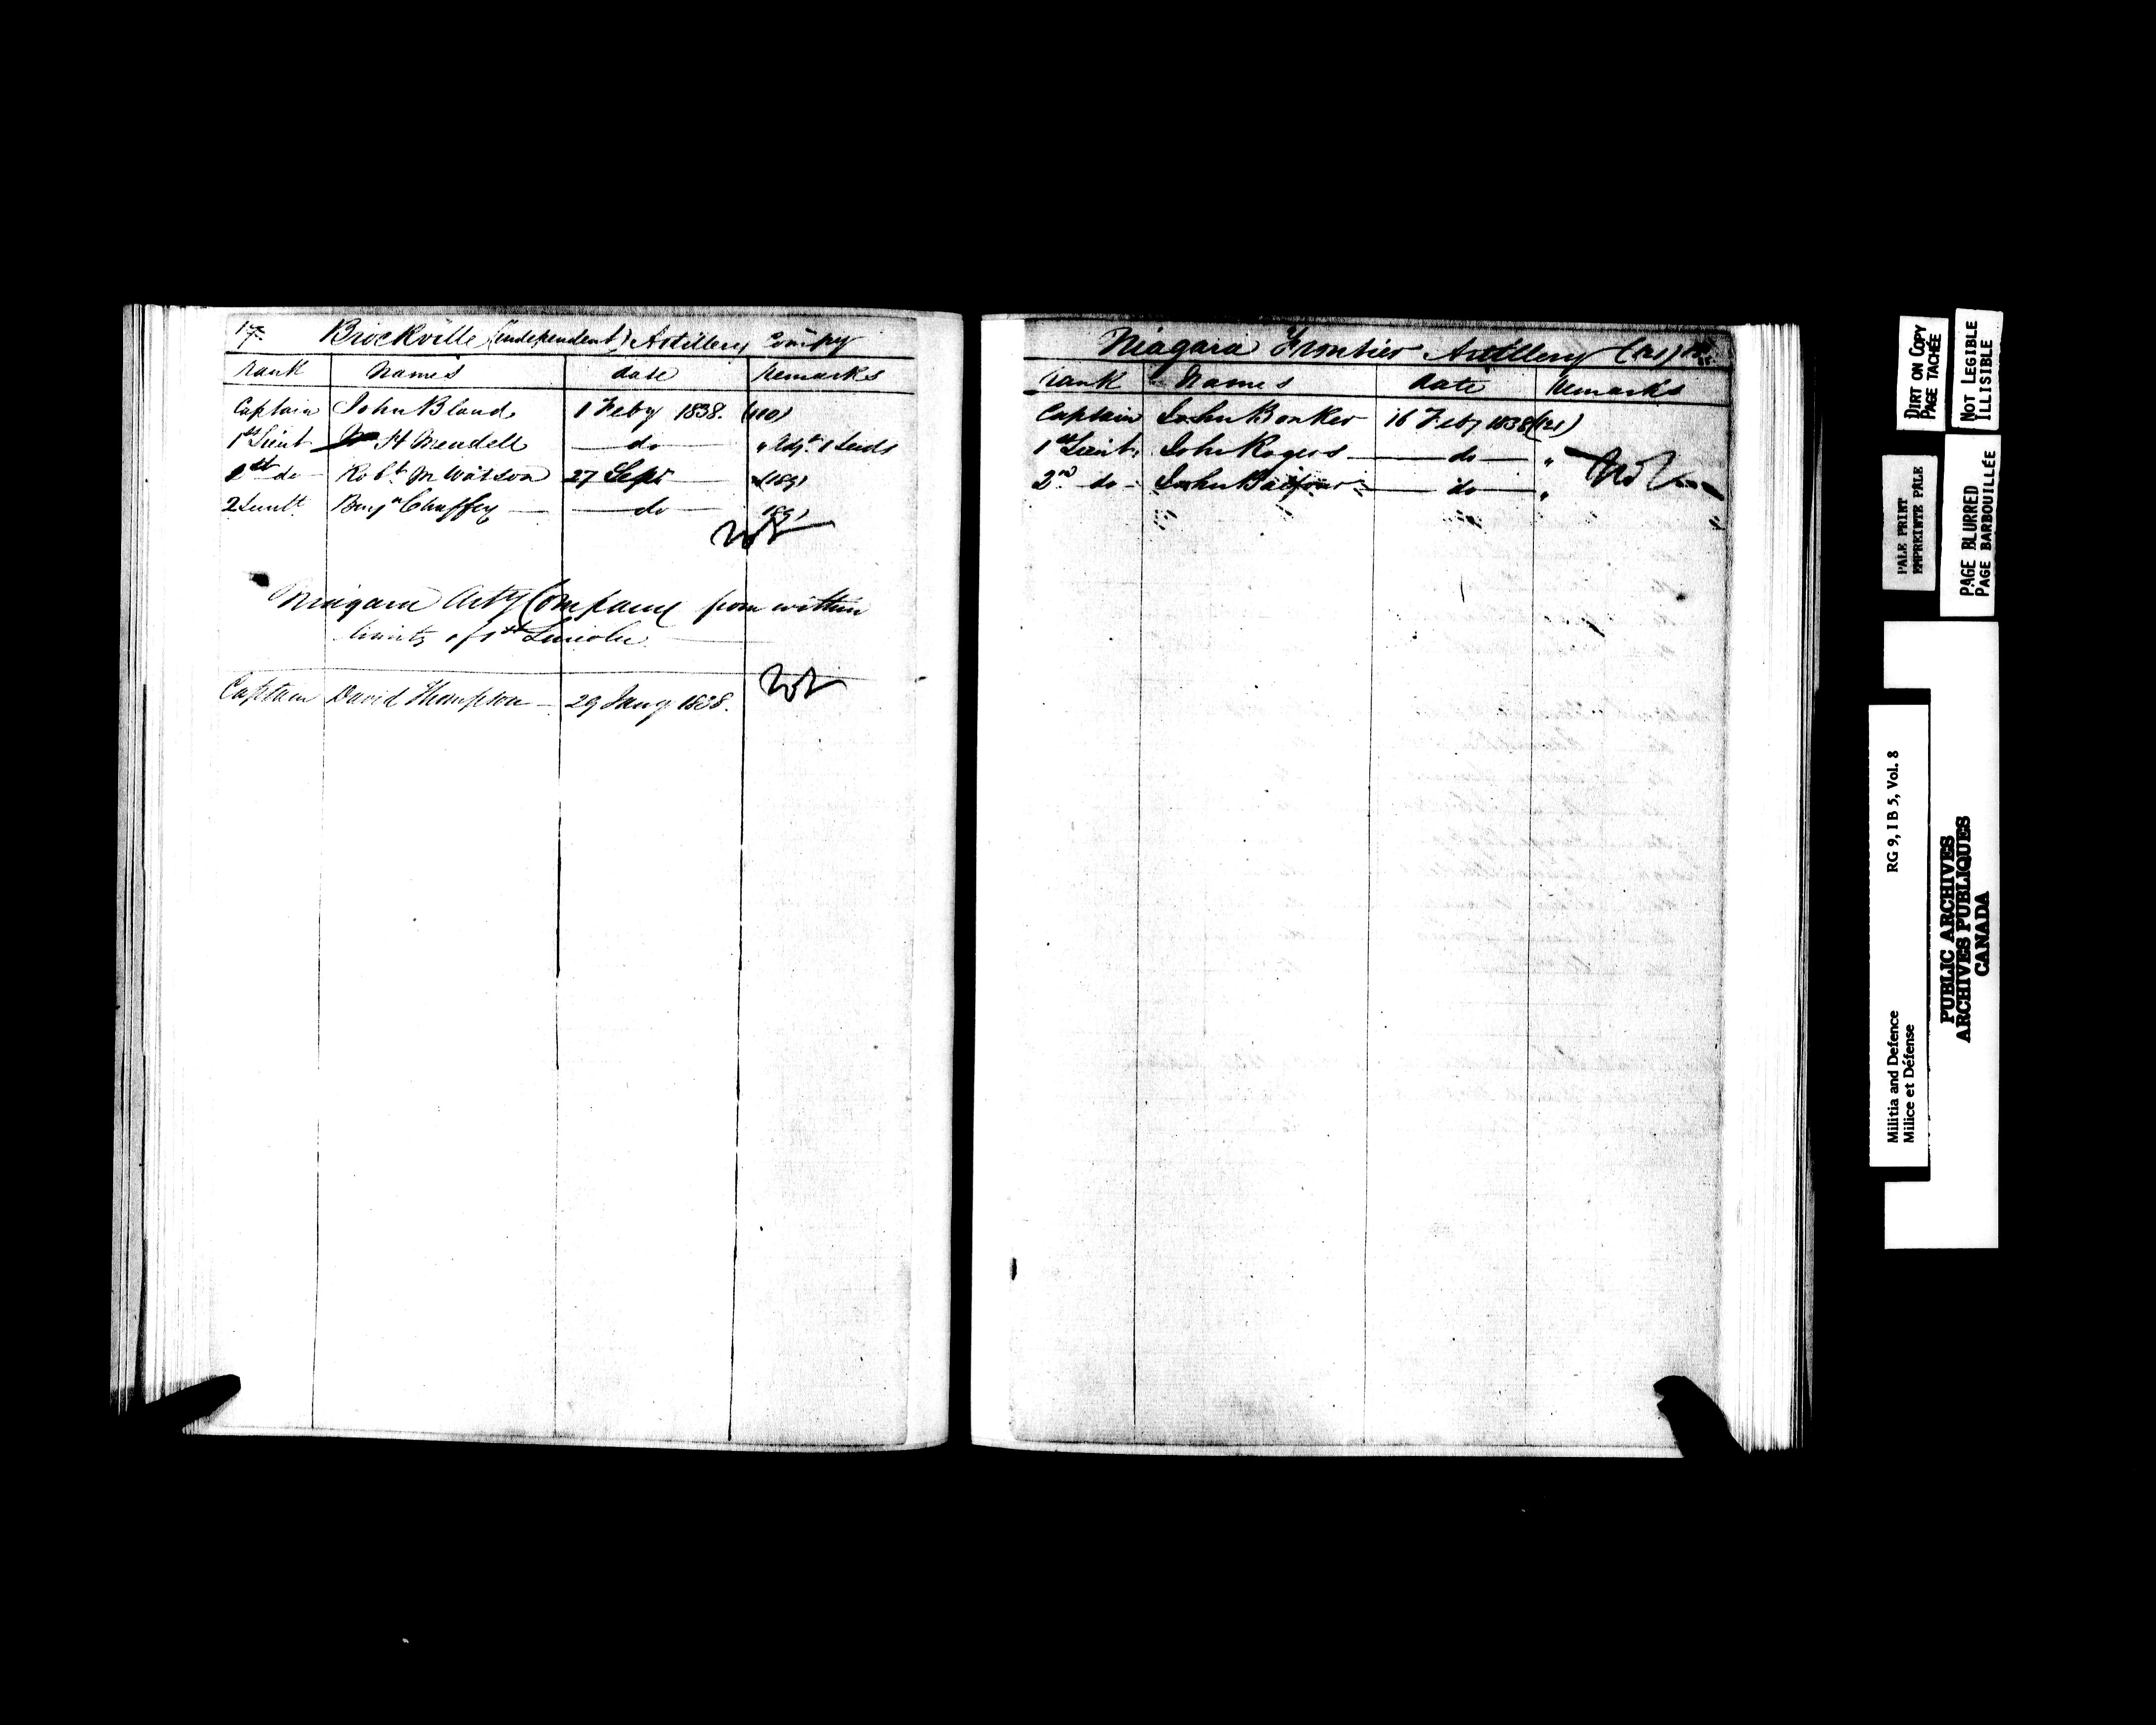 17. Brockville (independent) Artillery Compy
rank names date remarks
Captain John Bland 1 Feby 1838. (110)
1st Lieut H Mendell do " Adjt. 1 Leeds
1st do Robt. M Watson 27 Sept (189)
2 Lieut Benjn Chaffey do 189)
Niagara Arty Company from within
limits of 1st Lincoln
Captain David Thompson 29 Jany 1838.
Niagara Frontier Artillery (121)
rank Names date remarks
Captain John Bonker 16 Feby 1838 (121)
1st Lieut. John Rogers do "
2nd do John Balfour do "
DIRT ON COPY
PAGE TACHÉE
NOT LEGIBLE
ILLISIBLE
PALE PRINT
EMPREINTE PALE
PAGE BLURRED
PAGE BARBOUILLÉE
Militia and Defence RG 9, I B 5, Vol. 8
Milice et Défense
PUBLIC ARCHIVES
ARCHIVES PUBLIQUES
CANADA